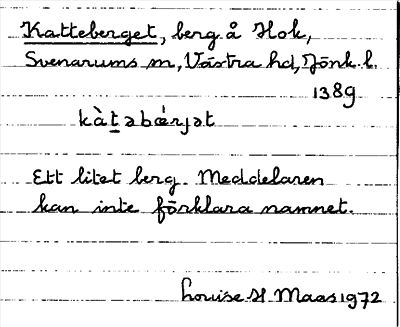 Katteberget, berg å Hok,
Svenarums sn, Västra hd, Jönk. l.
1389
kàt̲əbǽrjət
Ett litet berg. Meddelaren
kan inte förklara namnet.
Louise H. Maas 1972